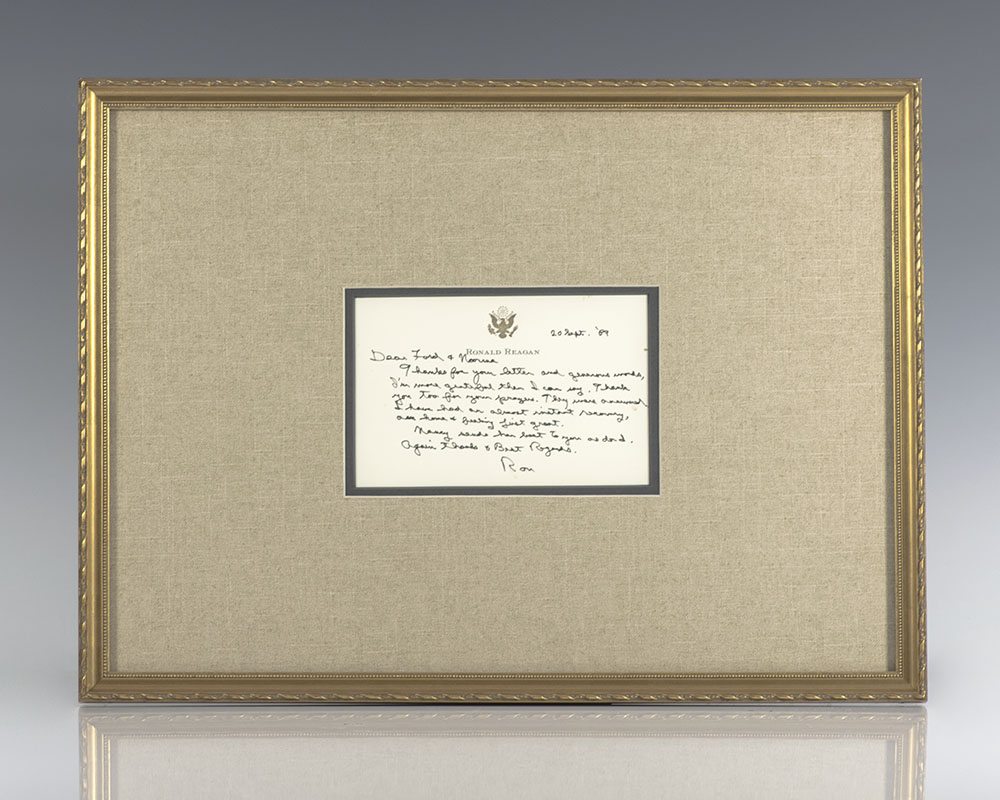 20 Sept. '89
RONALD REAGAN
Dear Ford & Norma
Thanks for your letter and generous words,
I'm more grateful than I can say. Thank
you too for your prayers. They were answered
I have had an almost instant recovery,
am home & feeling just great.
Nancy sends her best to you as do I.
Again thanks & Best Regards.
Ron